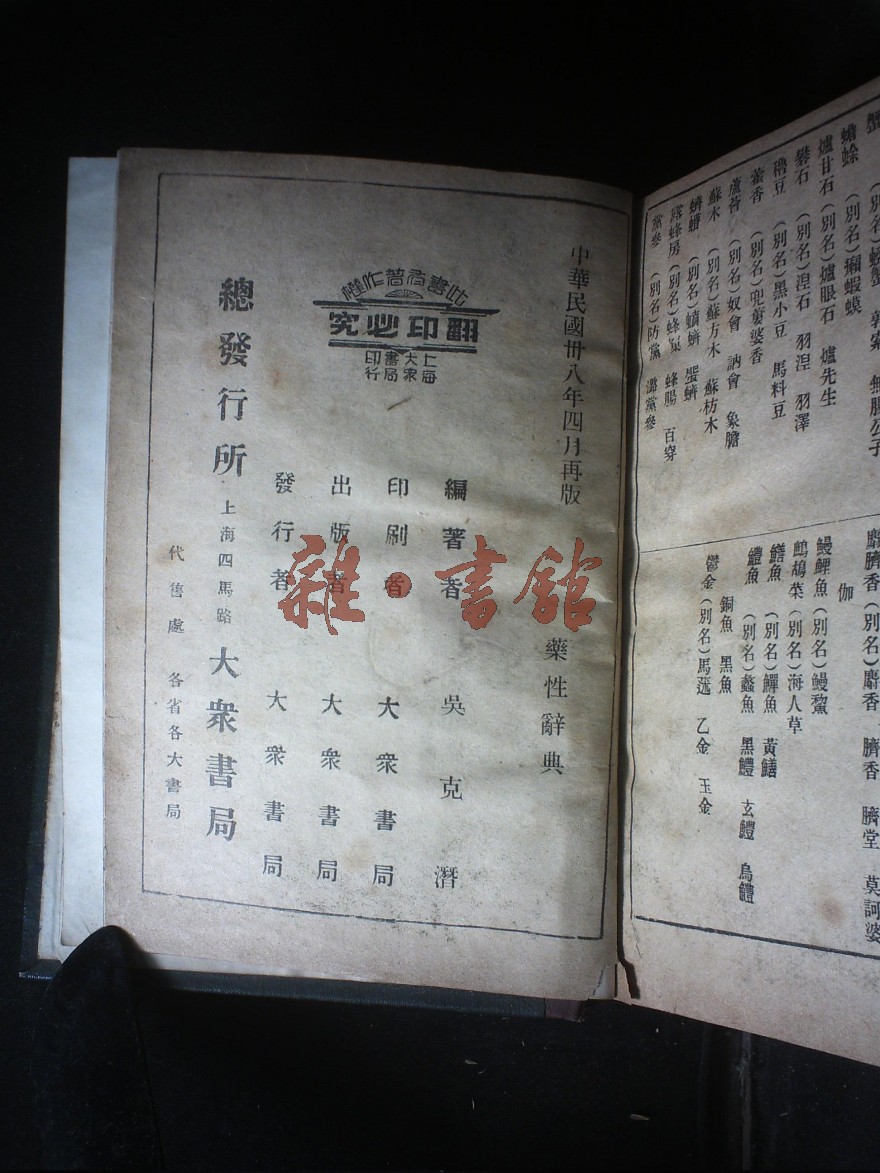 蟹 （別名）螃蟹 郭索 無腸公子
蟾蜍 （別名）癩蝦蟆
爐甘石（別名）爐眼石 爐先生
礬石 （別名）涅石 羽涅 羽澤
穭豆 （別名）黑小豆 馬料豆
藿香 （別名）兜蔞婆香
蘆薈 （別名）奴會 訥會 象膽
蘇木 （別名）蘇方木 蘇枋木
蠐螬 （別名）蟦蠐 蜚蠐
露蜂房（別名）蜂腸 百穿
黨參 （別名）防黨 潞黨參
麝臍香（別名）麝香 臍香 臍堂 莫訶婆
伽
鰻鱺魚（別名）鰻鱺
鷓鴣菜（別名）海人草
鱔魚 （別名）鱓魚 黃鱔
鱧魚 （別名）蠡魚 黑鱧 玄鱧 烏鱧
銅魚 黑魚
鬱金（別名）馬蒁 乙金 玉金
中華民國卅八年四月再版 藥性辭典
此書有著作權
翻印必究
上海
大眾
書局
印行
編著者 吳克潛
印刷者 大衆書局
出版者 大衆書局
發行者 大衆書局
總發行所 上海四馬路 大衆書局
代售處 各省各大書局
雜·書館